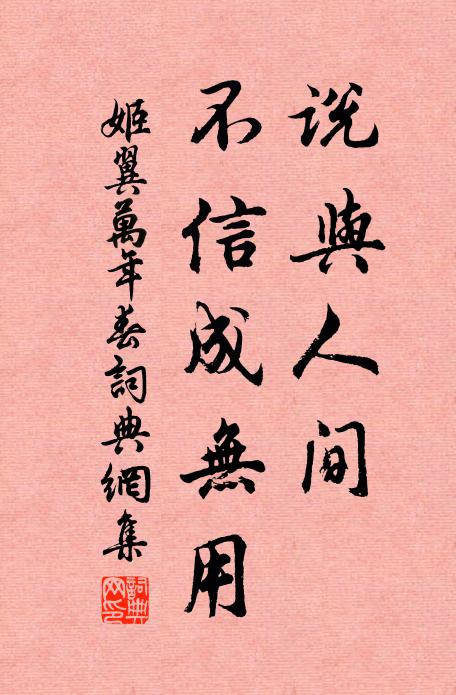 說與人间
不信成無用
姬翼萬年春詞典網集
詞典
网印